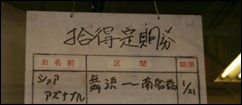 拾得定期券
お名前 区間 期限
シャア 舞浜～南船橋 1/21
アズナブル